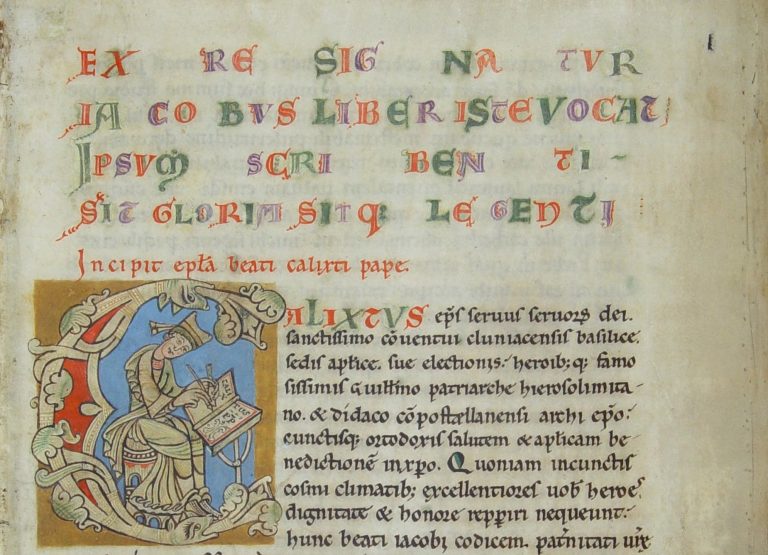 EX RE SIGNATUR
IACOBVS LIBER ISTE VOCAT
IPSVM SCRIBENTI-
SIT GLORIA SITQ: LEGENTI
Incipit epła beati calixti pape.
CALIXTVS ep̄s seruus seruorꝝ dei.
sanctissimo cōuentui cluniacensis basilice.
sedis aplice. sue electionis. heroib; q; famo
sissimis Guiłłmo patriarche hierosolimita
no. & didaco cōpostellanensi archi ep̄o.
cunctisq; ortodoxis salutem & aplicam be
nedictionē in xp̄o. Quoniam in cunctis
cosmi climatib; excellentiores uob̄ heroes
dignitate & honore repperiri nequeunt.
hunc beati iacobi codicem. pat̄nitati